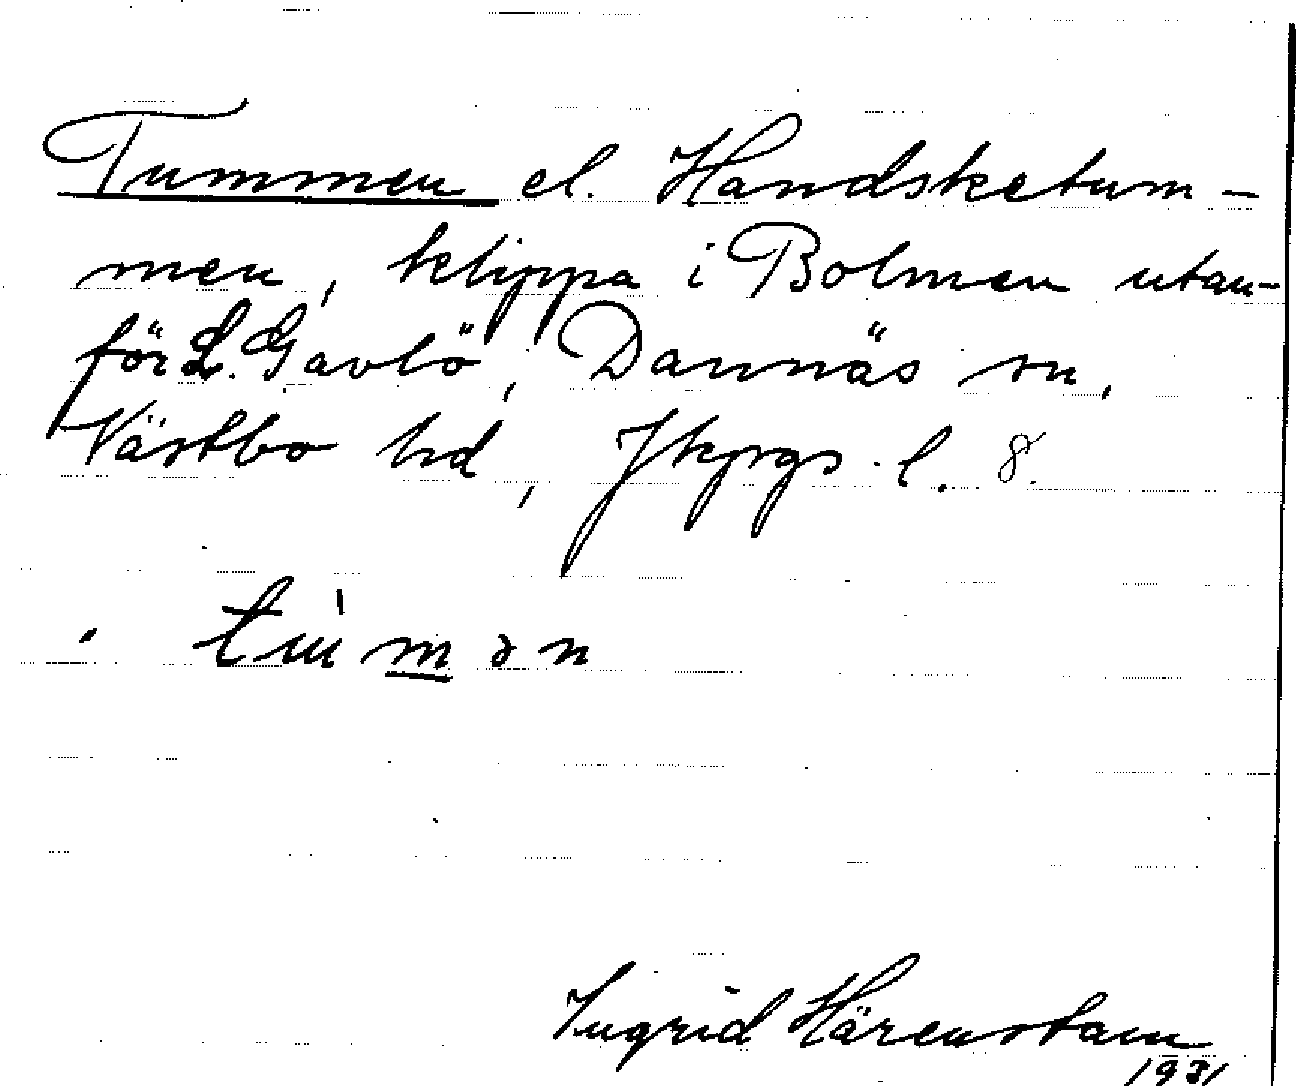 Tummen el. Handsketum-
men, klippa i Bolmen utan-
för L. Gavlö, Dannäs sn,
Västbo hd, Jkpgs. l. 8.
tu̇mən
Ingrid Härenstam
1931